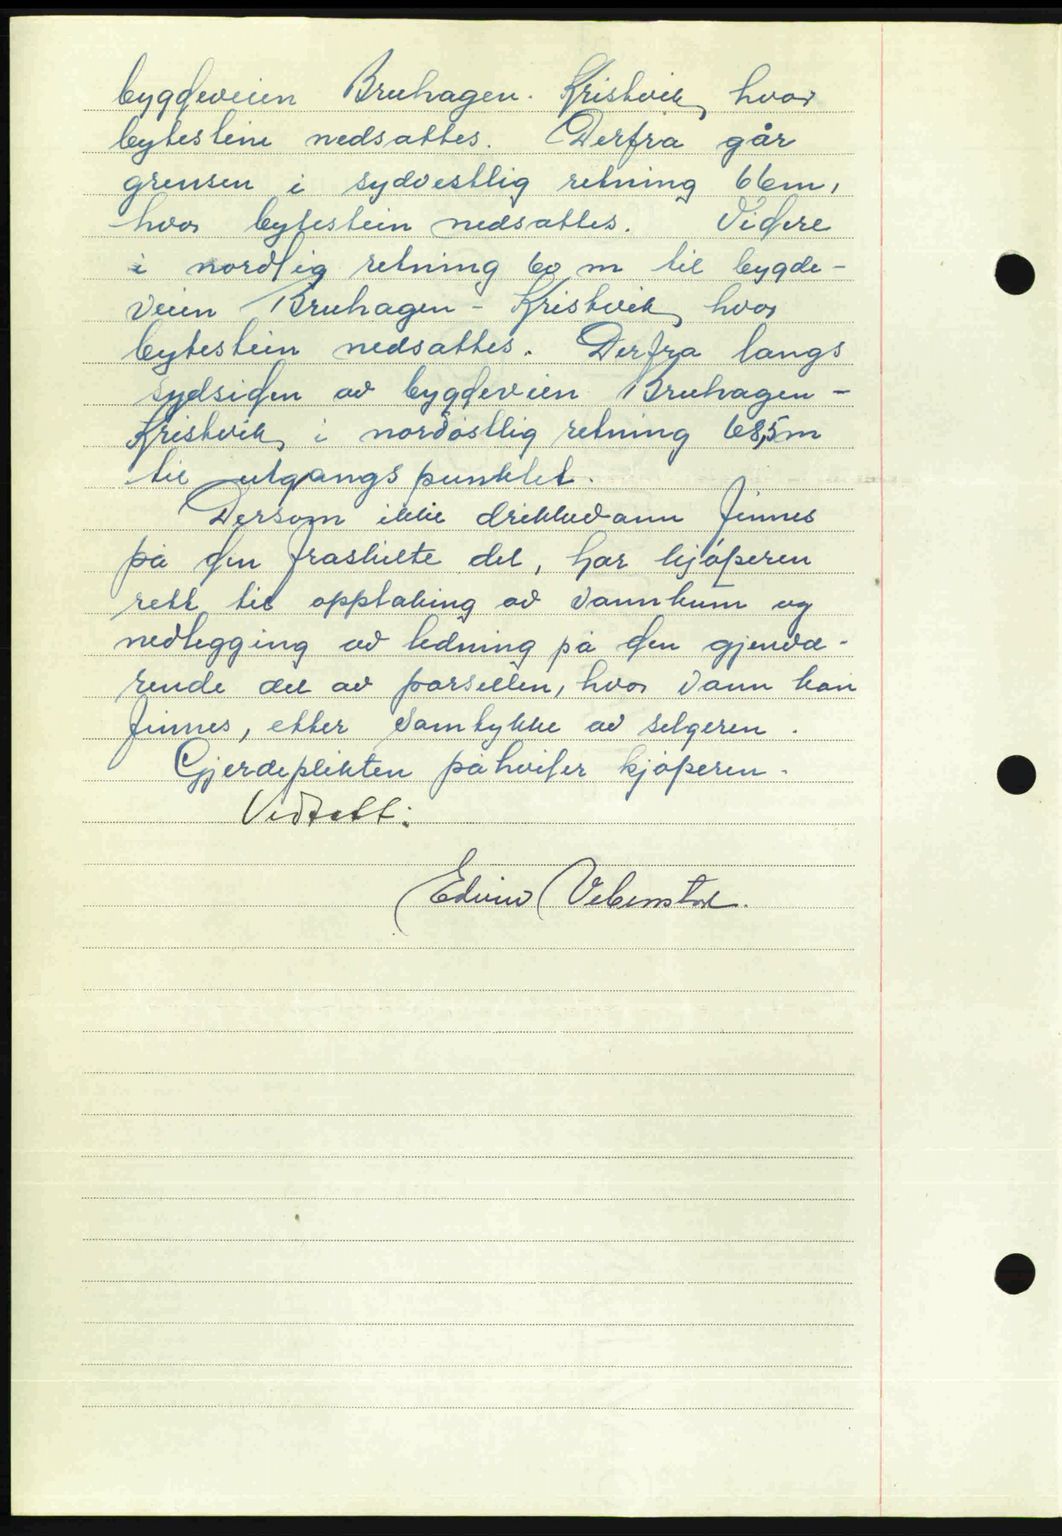 bygdeveien Bruhagen - Kristvik, hvor
bytestein nedsattes. Derfra går
grensen i sydvestlig retning 66 m,
hvor bytestein nedsattes. Videre
i nordlig retning 60 m til bygde-
veien Bruhagen - Kristvik, hvor
bytestein nedsattes. Derfra langs
sydsiden av bygdeveien Bruhagen -
Kristvik, i nordöstlig retning 68,5 m
til utgangspunktet.
Dersom ikke drikkevann finnes
på den fraskilte del, har kjöperen
rett til opptaking av vannkum og
nedlegging av ledning på den gjenvæ-
rende del av parsellen, hvor vann kan
finnes, etter samtykke av selgeren.
Gjerdeplikten påhviler kjöperen.
Vedtatt:
Edvin